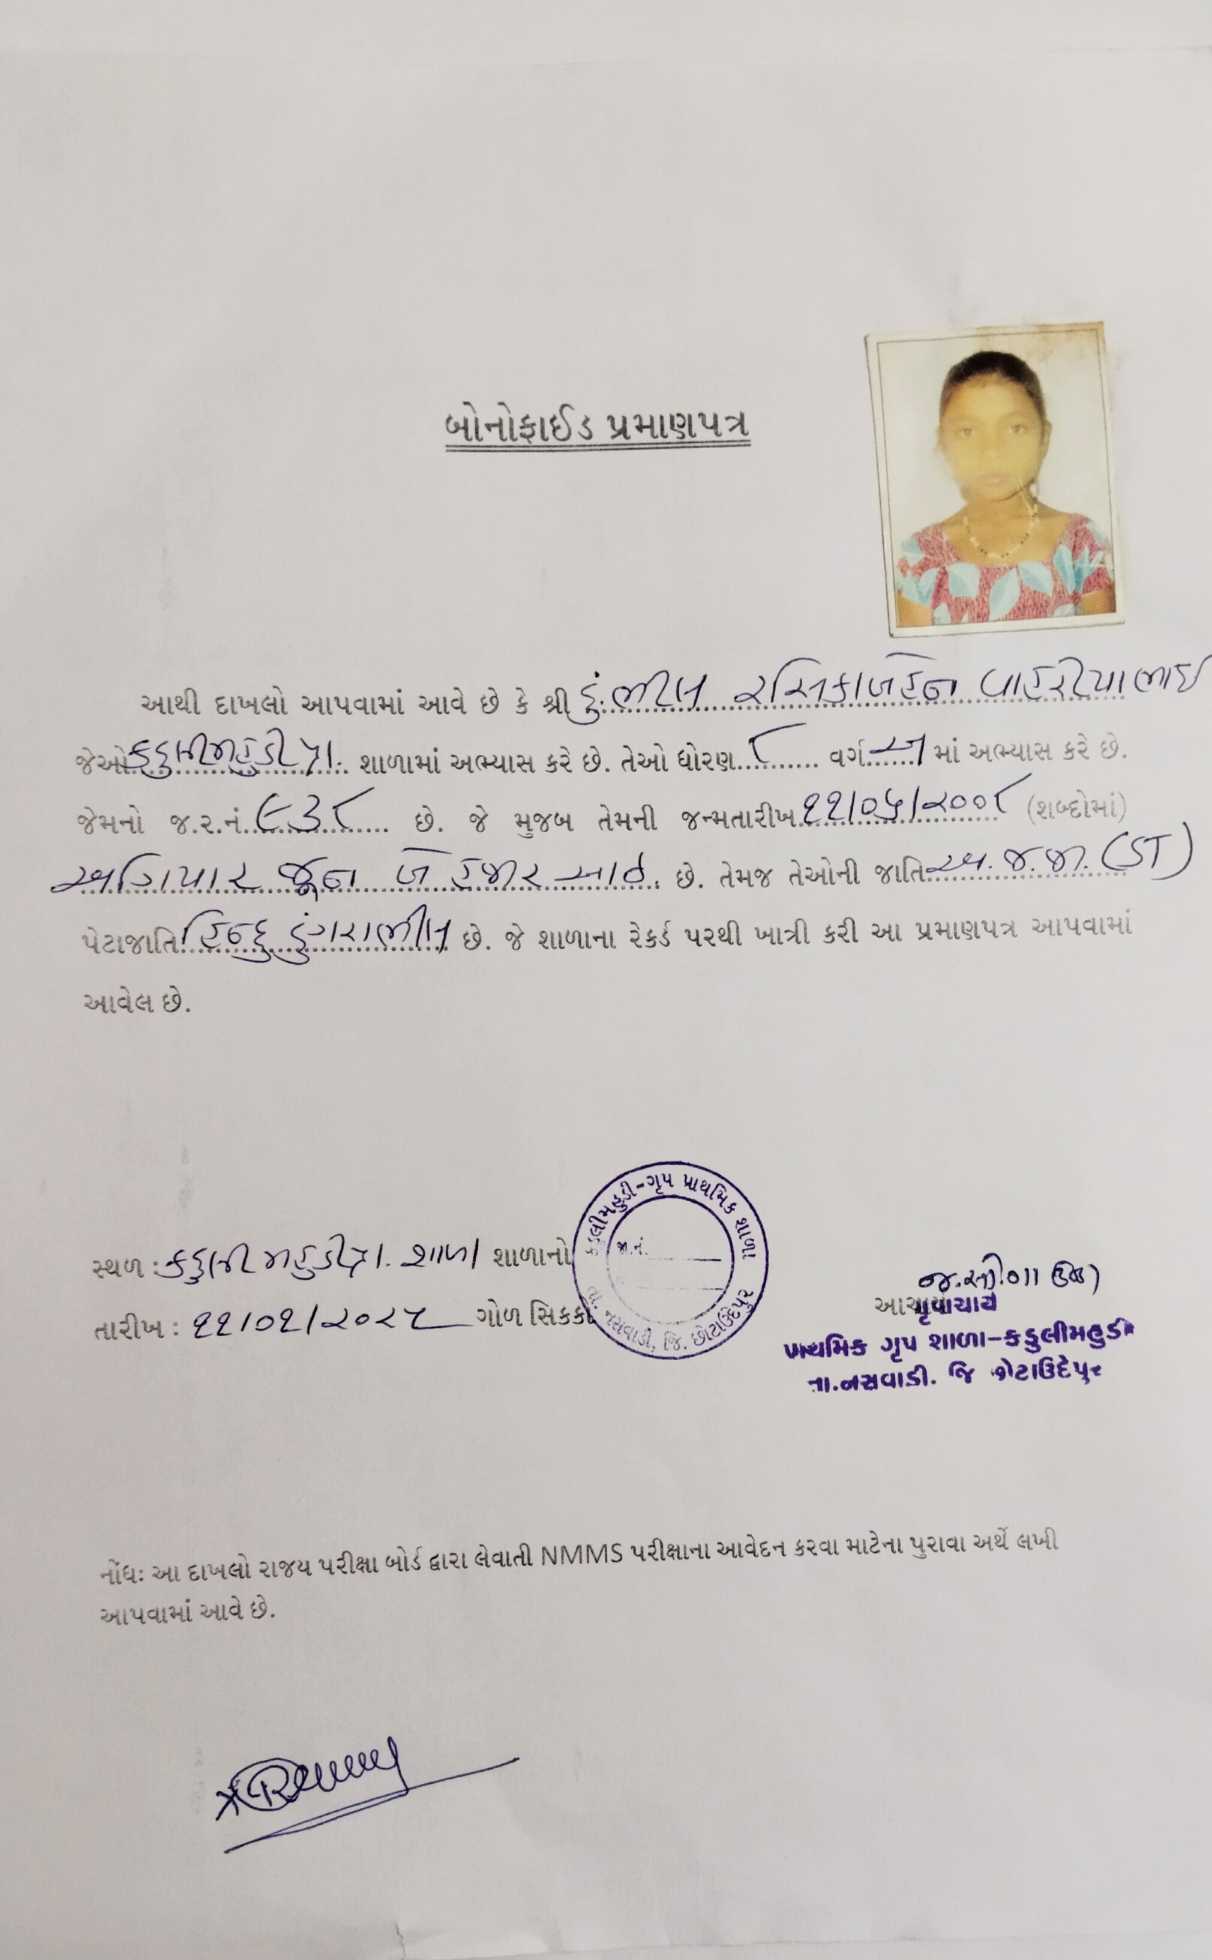 બોનોફાઈડ પ્રમાણપત્ર
આથી દાખલો આપવામાં આવે છે કે શ્રી ડું.ભીલ રસિકાબહેન
જેઓ કડુલીમહુડી પ્રા. શાળામાં અભ્યાસ કરે છે. તેઓ ધોરણ ૮ વર્ગ અ માં અભ્યાસ કરે છે.
જેમનો જ.ર.નં. ૯૩૮ છે. જે મુજબ તેમની જન્મતારીખ ૧૧/૦૬/૨૦૦૮ (શબ્દોમાં)
અગિયાર જૂન બે હજાર આઠ છે. તેમજ તેઓની જાતિ અ.જ.જા. (ST)
પેટાજાતિ હિન્દુ ડુંગરાભીલ છે. જે શાળાના રેકર્ડ પરથી ખાત્રી કરી આ પ્રમાણપત્ર આપવામાં
આવેલ છે.
કડુલીમહુડી-ગૃપ પ્રાથમિક શાળા
જા.નં.
તા. નસવાડી, જિ. છોટાઉદેપુર
સ્થળ : કડુલીમહુડી પ્રા. શાળા શાળાનો
તારીખ : ૧૧/૦૧/૨૦૨૧ ગોળ સિક્કો
આચાર્ય
પ્રાથમિક ગૃપ શાળા-કડુલીમહુડી
તા.નસવાડી. જિ છોટાઉદેપુર
નોંધઃ આ દાખલો રાજ્ય પરીક્ષા બોર્ડ દ્વારા લેવાતી NMMS પરીક્ષાના આવેદન કરવા માટેના પુરાવા અર્થે લખી
આપવામાં આવે છે.